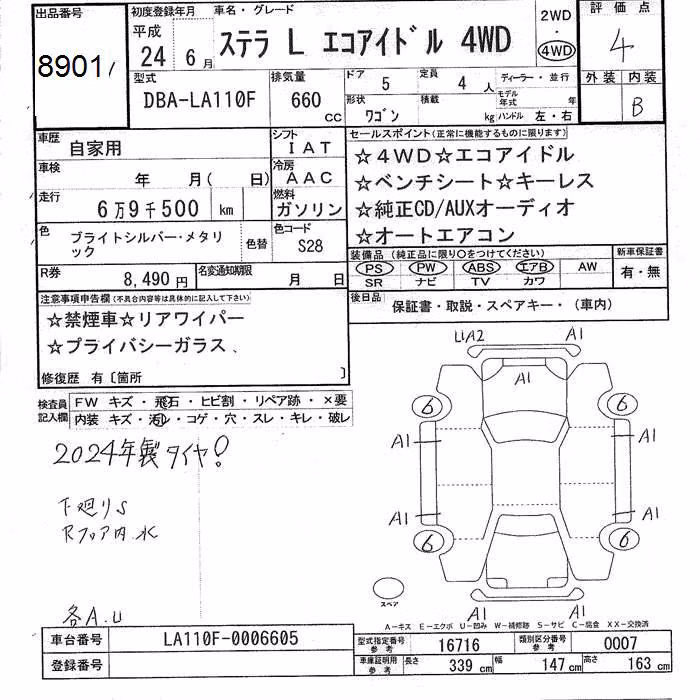 出品番号
8901
初度登録年月
平成
24 6月
車名・グレード
ステラ L エコアイドル 4WD
2WD
・
4WD
評価点
4
外装 内装
B
型式
DBA-LA110F
排気量
660 CC
ドア 5
定員 4 人
形状 ワゴン
積載 kg
ディーラー・並行
モデル年式 年
ハンドル 左・右
車歴
自家用
シフト
IAT
車検
年 月( 日)
冷房
AAC
走行
6万9千500 km
燃料
ガソリン
色
ブライトシルバー・メタリック
色替
色コード
S28
R券
8,490円
名変通知期限
月 日
セールスポイント(正常に機能するものに限ります)
☆4WD☆エコアイドル
☆ベンチシート☆キーレス
☆純正CD/AUXオーディオ
☆オートエアコン
装備品 (純正品に限り〇をつけてください)
PS PW ABS エアB AW
SR ナビ TV カワ
新車保証書
有・無
後日品
保証書・取説・スペアキー・(車内)
注意事項申告欄(不具合内容等は具体的に記入して下さい)
☆禁煙車☆リアワイパー
☆プライバシーガラス、
修復歴 有〔箇所 〕
検査員記入欄
FW キズ・飛石・ヒビ割・リペア跡・×要
内装 キズ・汚レ・コゲ・穴・スレ・キレ・破レ
2024年製タイヤ!
下廻りS
Rフロア内 水
各A.U
LiA2 A1
A1
6 6
A1 A1
A1 A1
6 6
スペア
A1 A1
A-キズ E-エクボ U-凹み W-補修跡 S-サビ C-腐食 XX-交換済
車台番号
LA110F-0006605
登録番号
型式指定番号 参考
16716
類別区分番号 参考
0007
車庫証明用 参考
長さ 339 cm
幅 147 cm
高さ 163 cm